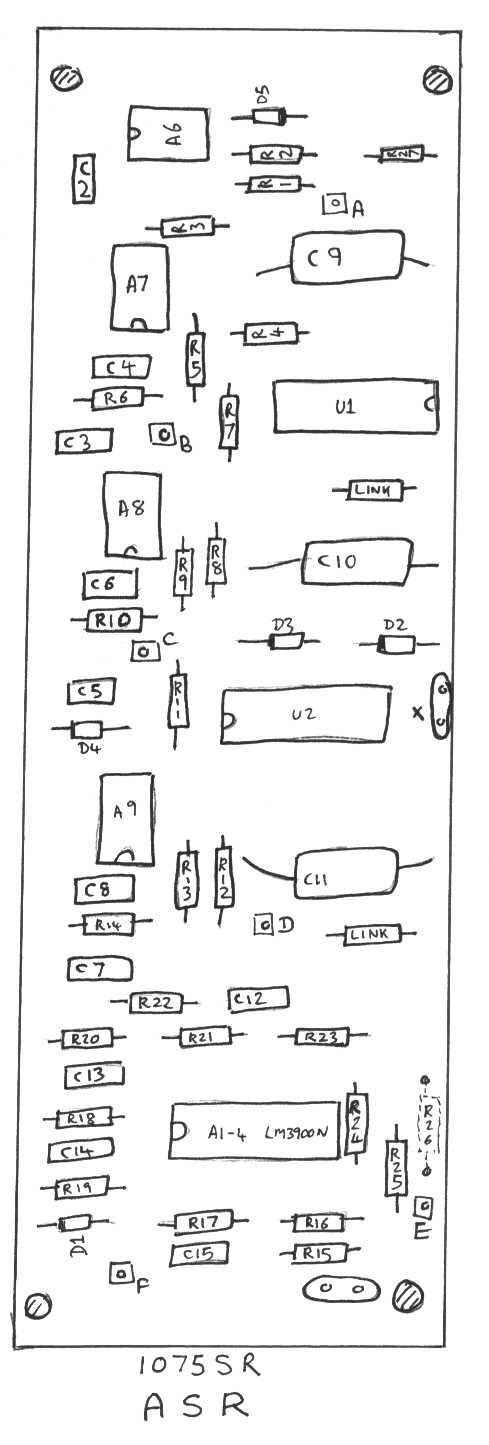 D5
A6
R2
R27
C2
R1
A
R3
C9
A7
R4
R5
C4
R6
R7
U1
B
C3
A8
LINK
R8
R9
C10
C6
R10
D3
D2
C
C5
R11
U2
X
D4
A9
R13
R12
C11
C8
R14
D
LINK
C7
R22
C12
R20
R21
R23
C13
R18
A1-4 LM3900N
R24
R26
C14
R25
R19
R17
R16
E
D1
C15
R15
F
1075SR
ASR